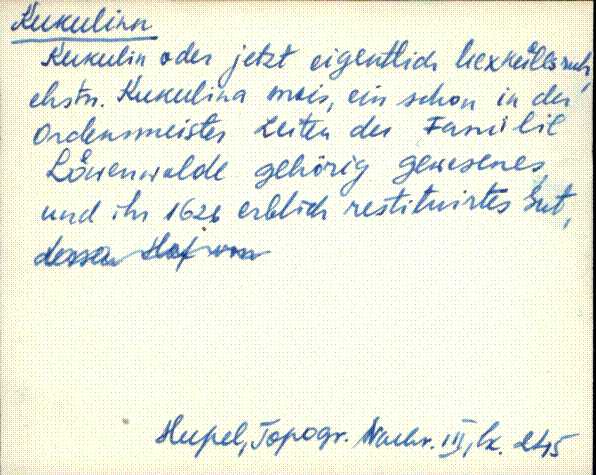 Kukulinn
Kukulin oder jetzt eigentlich
ehstn. Kukulina mois, ein schon in der
Ordensmeister Zeiten der Familie
Löwenwolde gehörig gewesenes,
und ihr 1626 erblich restituirtes Gut,
dessen Hof von
Hupel, Topogr. Nachr. III, lk. 245